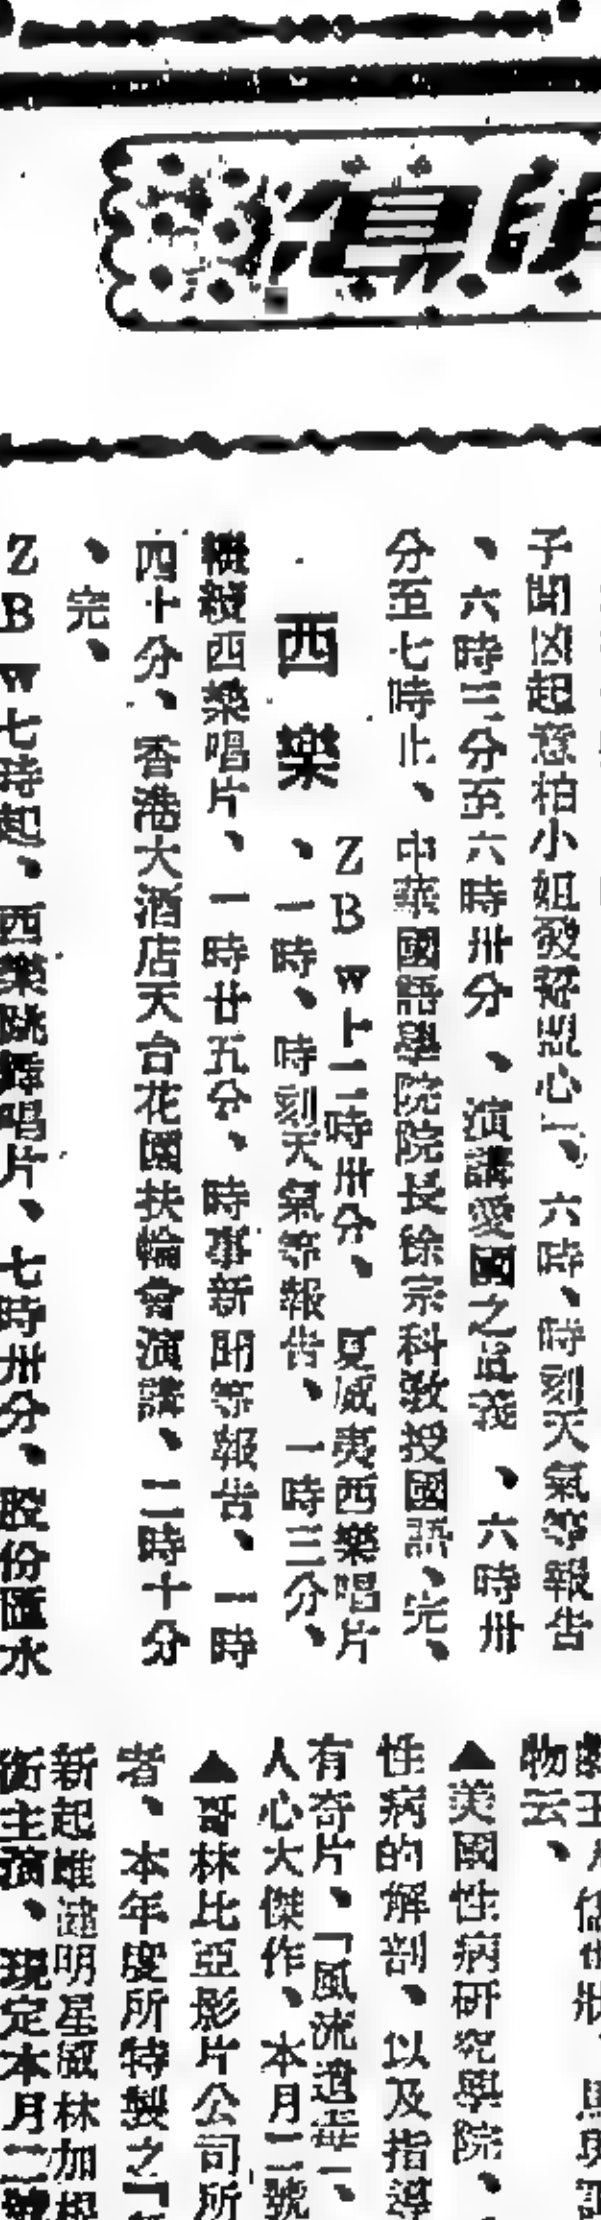 子聞凶起意柏小姐發誓盟心」、六時、時刻天氣等報告
、六時三分至六時卅分、演講愛國之眞義、六時卅
分至七時止、中華國語學院院長徐宗科敎授國語、完、
西樂
ZBW十二時卅分、夏威夷西樂唱片
、一時、時刻天氣等報告、一時三分、
繼續西樂唱片、一時廿五分、時事新聞等報告、一時
四十分、香港大酒店天台花園扶輪會演講、二時十分
、完、
ZBW七時起、西樂跳舞唱片、七時卅分、股份匯水
物云、
▲美國性病研究學院、
性病的解剖、以及指導
有奇片、「風流遺毒」、
人心大傑作、本月二號
▲哥林比亞影片公司所
者、本年度所特製之「
新起雄 明星威林加
主演、現定本月二號